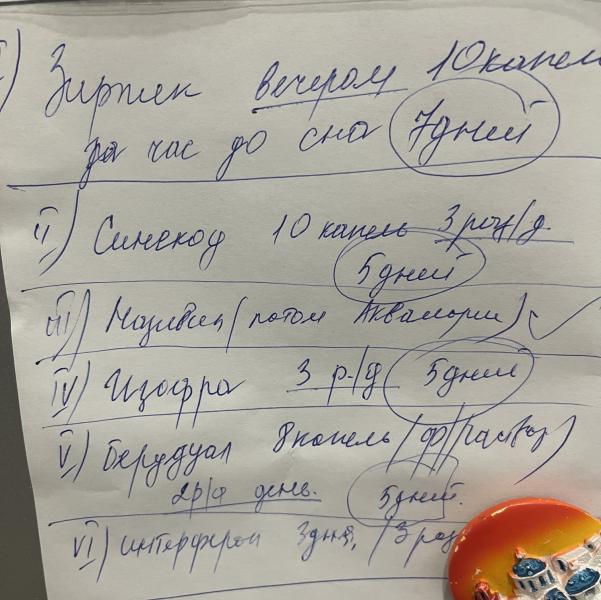 I) Зиртек вечером 10 капель
за час до сна 7 дней
II) Синекод 10 капель 3 раз/д.
5 дней
III) Називин (потом Аквамарис)
IV) Изофра 3 р/д 5 дней
V) Беродуал 8 капель (ф/раствор)
2р/д день. 5 дней.
VI) интерферон 3 дня, (3 раз